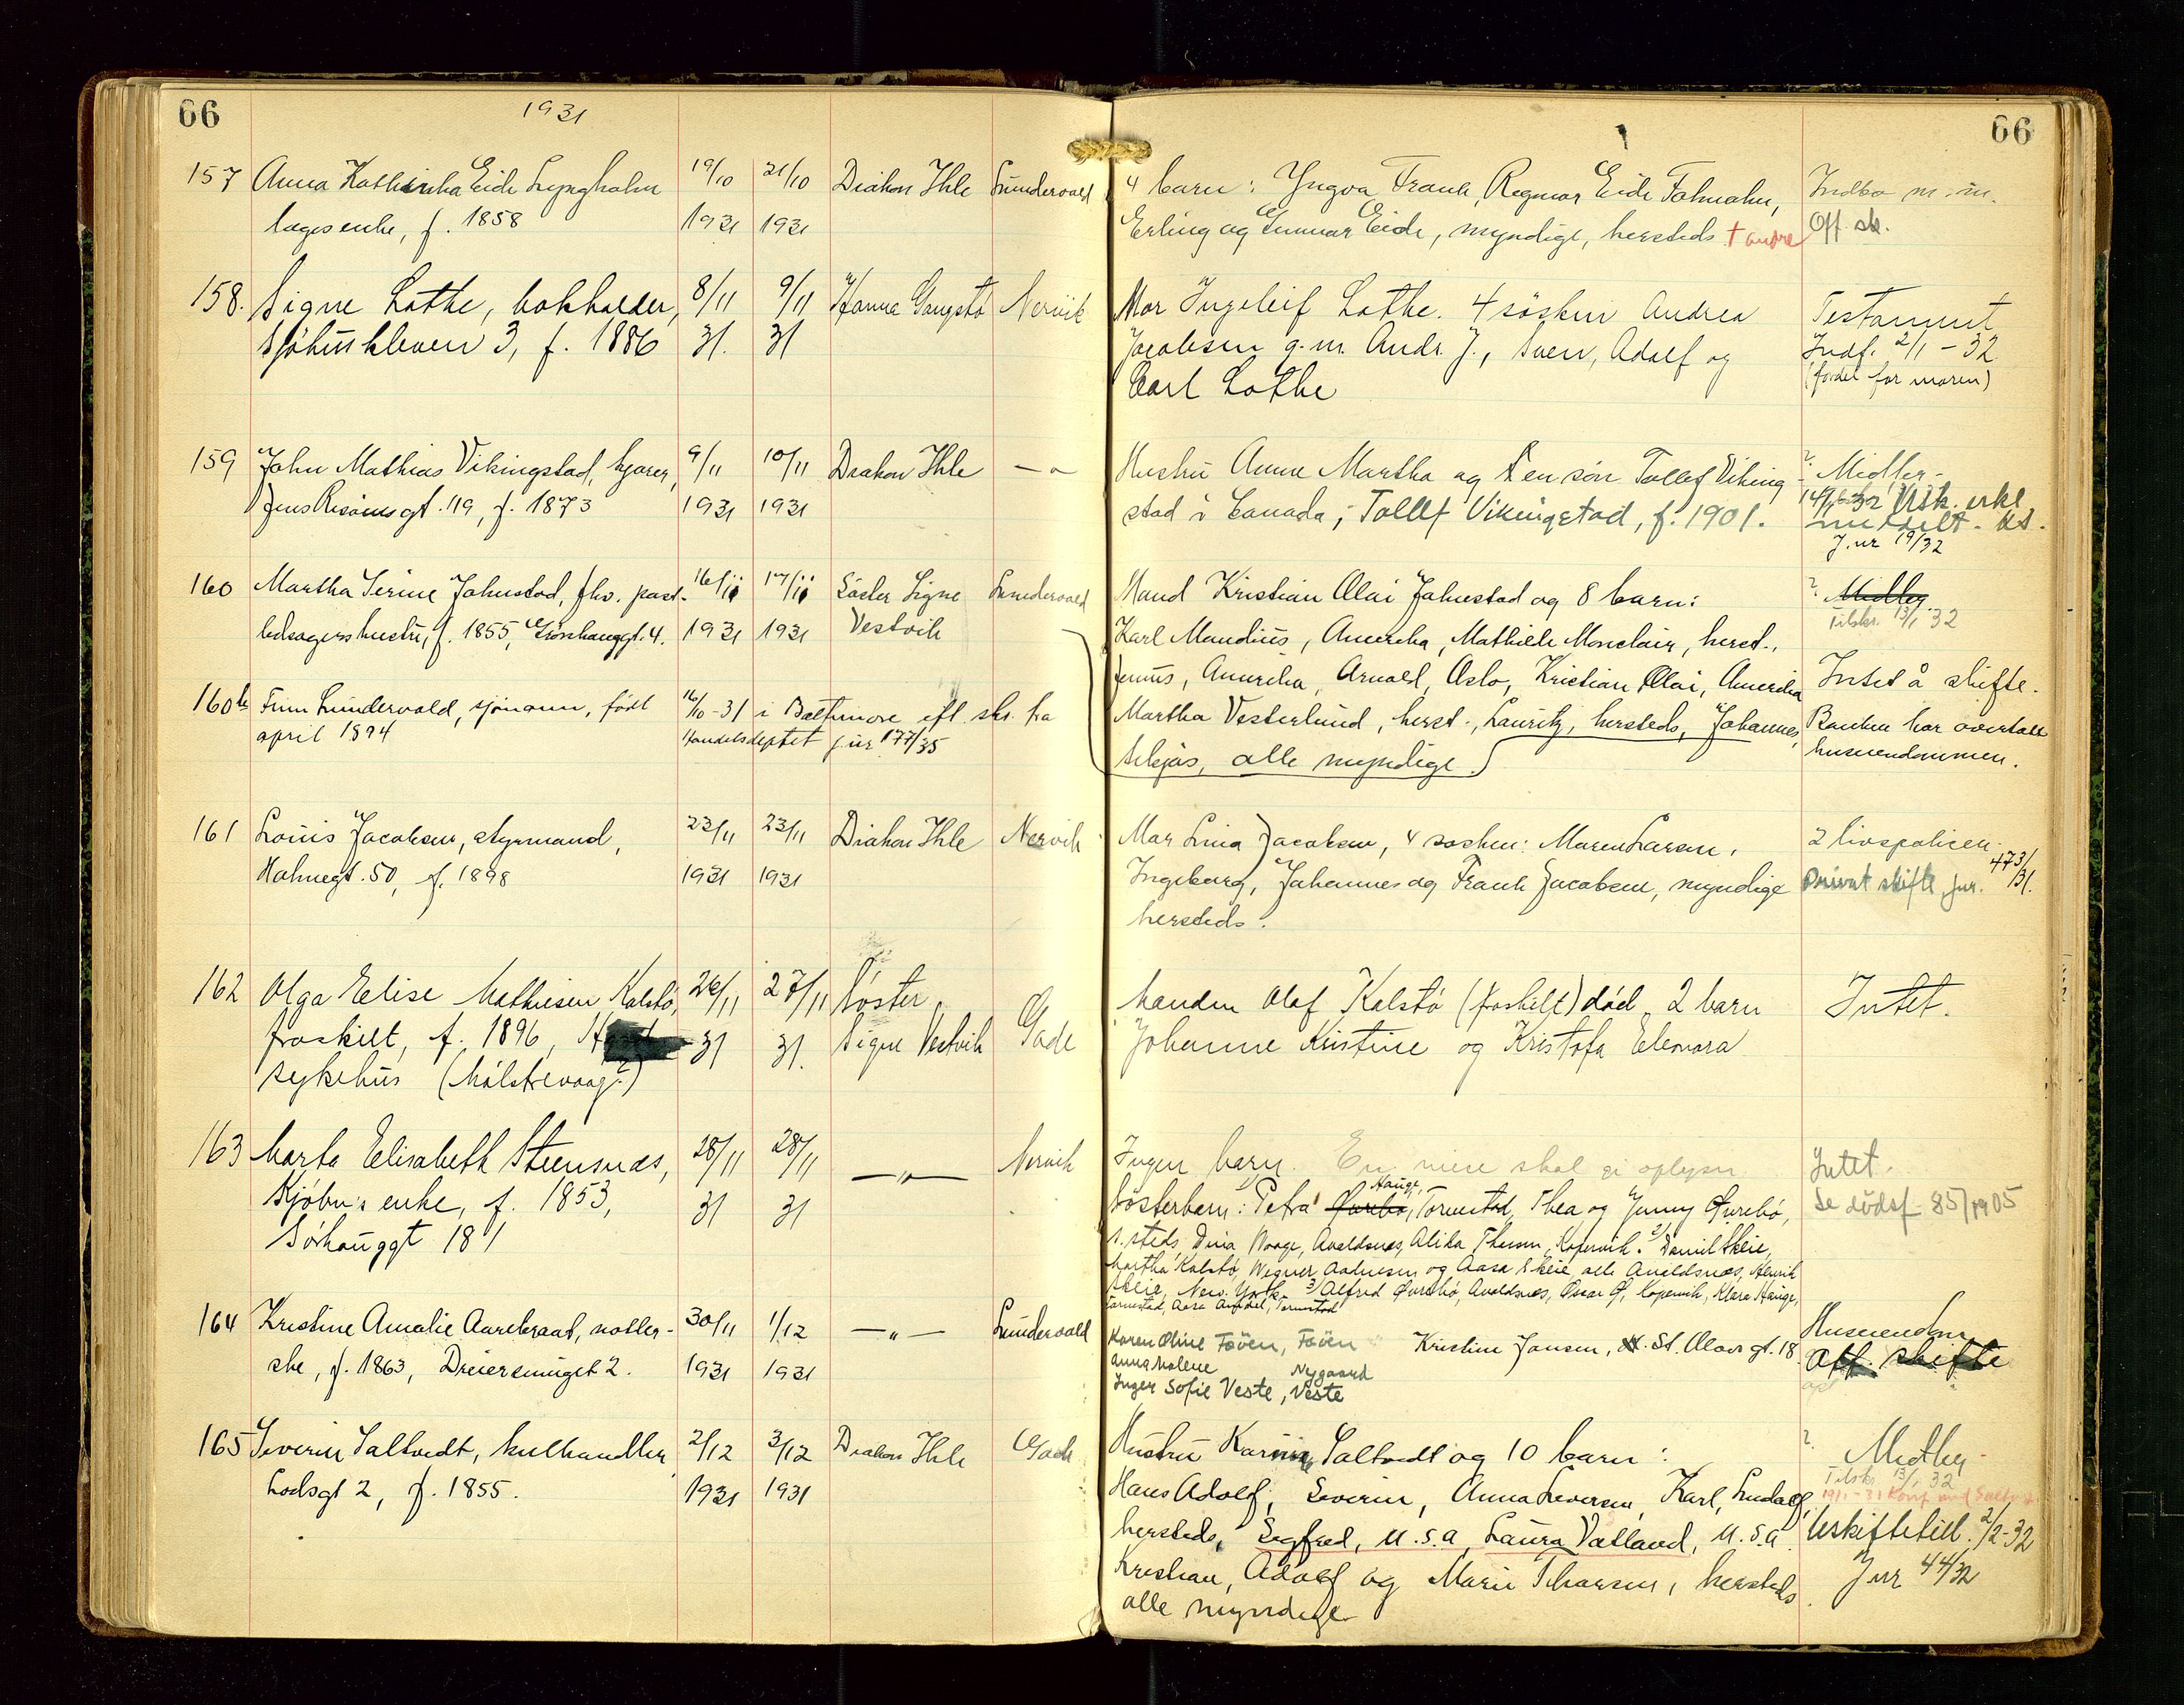 66
1931
66
157 Anna Kathinka Eide Lyngholm 19/10 21/10 Diakon Ihle Lundervold
lages enke, f. 1858 1931 1931
4 barn: Yngva Frank, Ragnar Eide
Erling og Gunnar Eide, myndige, hersteds + andre
Indbo m.m.
Off. sk.
158. Signe Lothe, bokholder, 8/11 9/11 Hanna Gangstø Nervik
Sjøhuskleven 3, f. 1886 31. 31
Mor Ingeleif Lothe. 4 søsken Andrea
Jacobsen g.m. Andr. J., Sven, Adolf og
Carl Lothe
Testament
Indf. 2/1-32
(fordel for moren)
159 John Mathias Vikingstad, kjører, 9/11 10/11 Diakon Ihle — " —
Jens Risøens gt. 19, f. 1873 1931 1931
Hustru Anne Martha og en søn Tollef Viking
stad i Canada; Tollef Vikingstad, f. 1901.
? Midler
Usk. erkl.
J.nr 19/32
160 Martha Serine Johnstad, fhv. post- 16/11 17/11 Søster Signe Lundervold
betsagers hustru, f. 1855, Sørhauggt. 4. 1931 1931 Vestvik
Mand Kristian Olai Johnstad og 8 barn:
Karl Maudius, Amerika, Mathilde Monclair, herst.,
Jenius, Amerika, Arnold, Oslo, Kristian Olai, Amerika
Martha Vesterlund, herst., Lauritz, hersteds, Johannes,
tilsjøs, alle myndige.
? Midler
Tilskr. 13/1 32
Intet å skifte.
Banken har overtatt
huseiendommen.
160b Finn Lundervold, sjømann, født 16/10-31 i Baltimore efl. skr. fra
april 1894 Handelsdeptet j.nr 177/35
161 Louis Jacobsen, styrmand, 23/11 23/11 Diakon Ihle Nervik
Holmegt. 50, f. 1898 1931 1931
Mor Lina Jacobsen, 4 søsken: Maren Larsen,
Ingeborg, Johannes og Frank Jacobsen, myndige
hersteds.
2 livspoliser.
Privat skifte jnr. 473/31.
162 Olga Elise Mathiesen Kalstø, 26/11 27/11 Søster
fraskilt, f. 1896, 31 31. Signe Vestvik Gade
sykehus
Manden Olaf Kalstø (fraskilt) død. 2 barn
Johanne Kristine og Kristofa Eleonora
Intet.
163 Marta Elisabeth Steensnæs, 28/11 28/11 — " — Nervik
Kjøbm's enke, f. 1853, 31 31
Sørhauggt 181
Ingen barn. En niese skal gi oplysn.
Søsterbarn: Petra Hauge, Torvestad, Thea og Jenny Øvrebø,
s.steds Dina Waage, Avaldsnes, Alida Thorsen, Kopervik. 2) Daniel Skeie,
Martha Kalstø, Wegner Aadnesen og Aasa Skeie, alle Avaldsnes, Henrik
Skeie, New York. 3) Alfred Øvrebø, Avaldsnes, Oscar Ø, Kopervik, Klara Hauge,
Torvestad, Aasa Torvestad
Intet.
Se dødsf 85/1905
164 Kristine Amalie Aarebraat, 30/11 1/12 — " — Lundervold
ske, f. 1863, Dreiersmuget 2. 1931 1931
Karen Oline Føøen, Føøen Kristine Jansen, St. Olavs gt. 18
Anna Malene Nygaard
Inger Sofie Veste, Veste
Huseiendom
Off. skifte
165 Severin Saltvedt, kulhandler 2/12 3/12 Diakon Ihle Gade
Lodsgt 2, f. 1855. 1931 1931
Hustru Karine Saltvedt og 10 barn:
Hans Adolf, Severin, Anna Seversen, Karl, Ludolf
hersteds, Sigfred, U.S.A, Laura Valland, U.S.A.
Kristian, Adolf og Marie Thorsen, hersteds
alle myndige
? Midler
Tilskr. 13/1 32
Uskiftetill. 2/2-32
Jnr 44/32